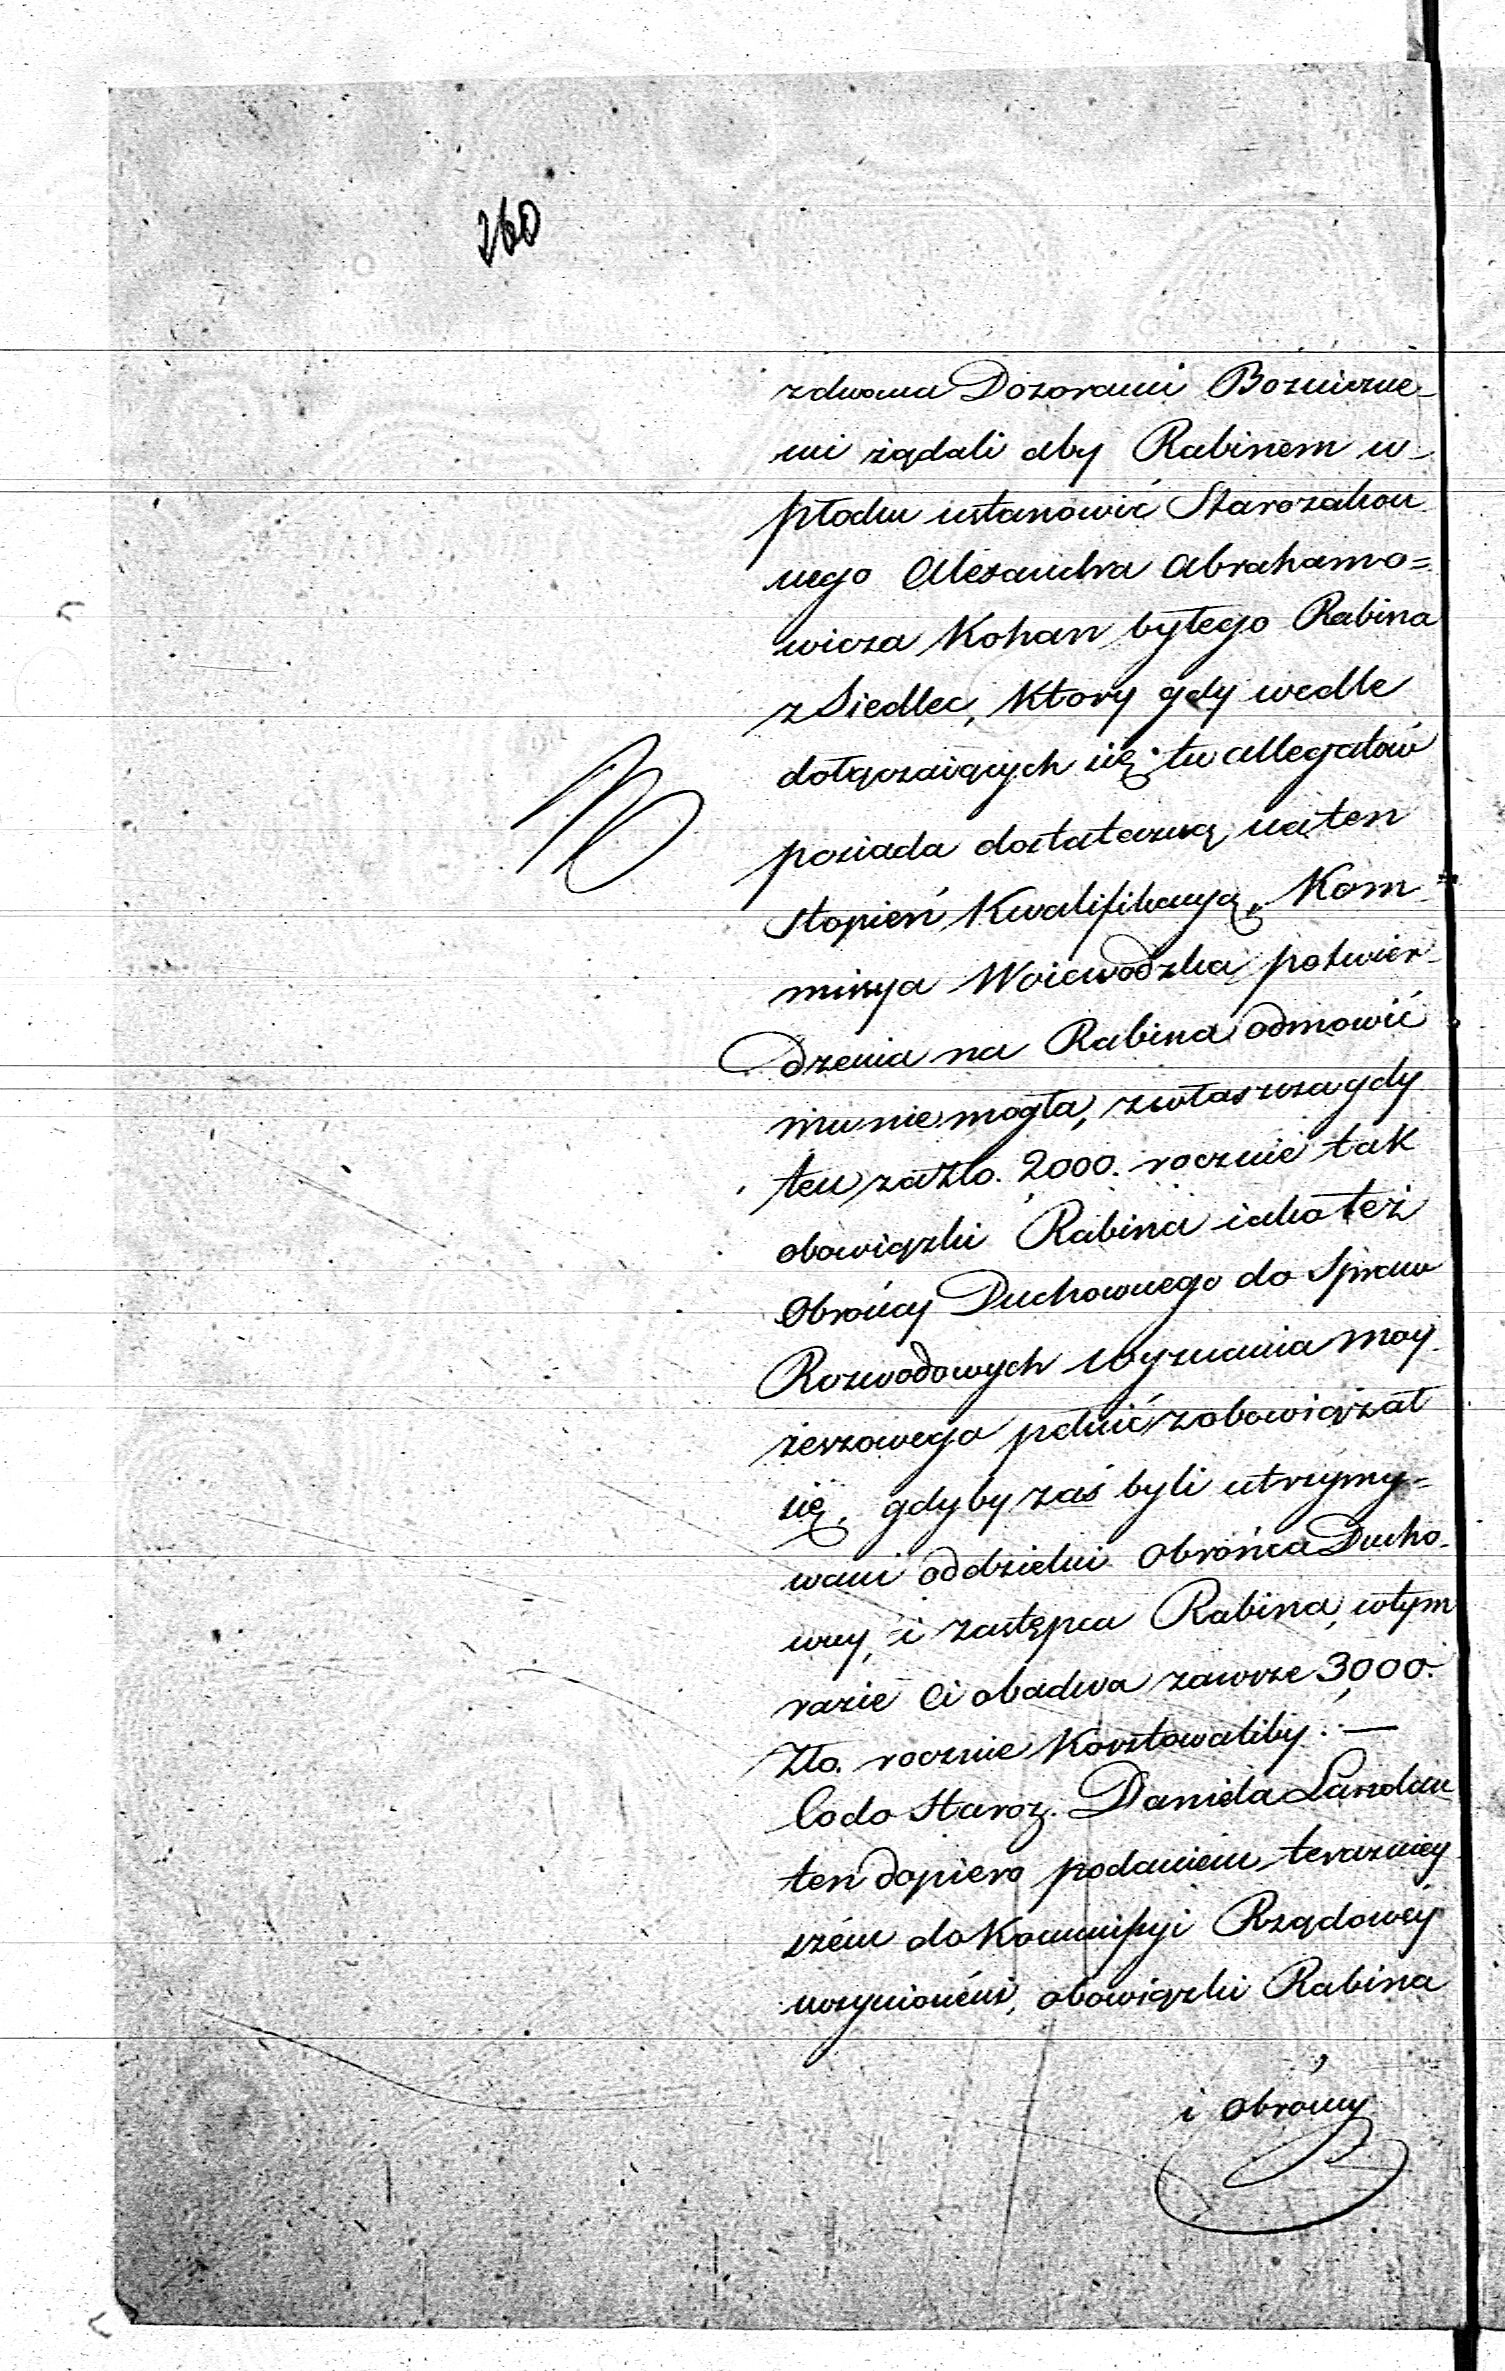 260
z dwoma Dozorami Bożnicze-
mi żądali aby Rabinem w
Płocku ustanowić Starozakon
nego Alexandra Abrahamo=
wicza Kohan byłego Rabina
z Siedlec, Ktory gdy wedle
dołączaiących się tu allegatów
posiada dostateczną na ten
stopień Kwalifikacyą, Kom
missya Woiewodzka potwier
dzenia na Rabina odmowić
mu nie mogła, zwłaszcza gdy
ten za Zło. 2000. rocznie tak
obowiązki Rabina iako też
Obrońcy Duchownego do Spraw
Rozwodowych wyznania moy
żeszowego pełnić zobowiązał
się, gdyby zaś byli utrzymy=
wani oddzielni Obrońca Ducho-
wny, i zastępca Rabina, w tym
razie Ci obadwa zawsze 3,000.
Zło. rocznie Kosztowaliby. —
Co do Staroz. Daniela Landau
ten dopiero podaniem teraźniey
szém do Kommissyi Rządowéy
uczynioném, obowiązki Rabina
i Obrońcy